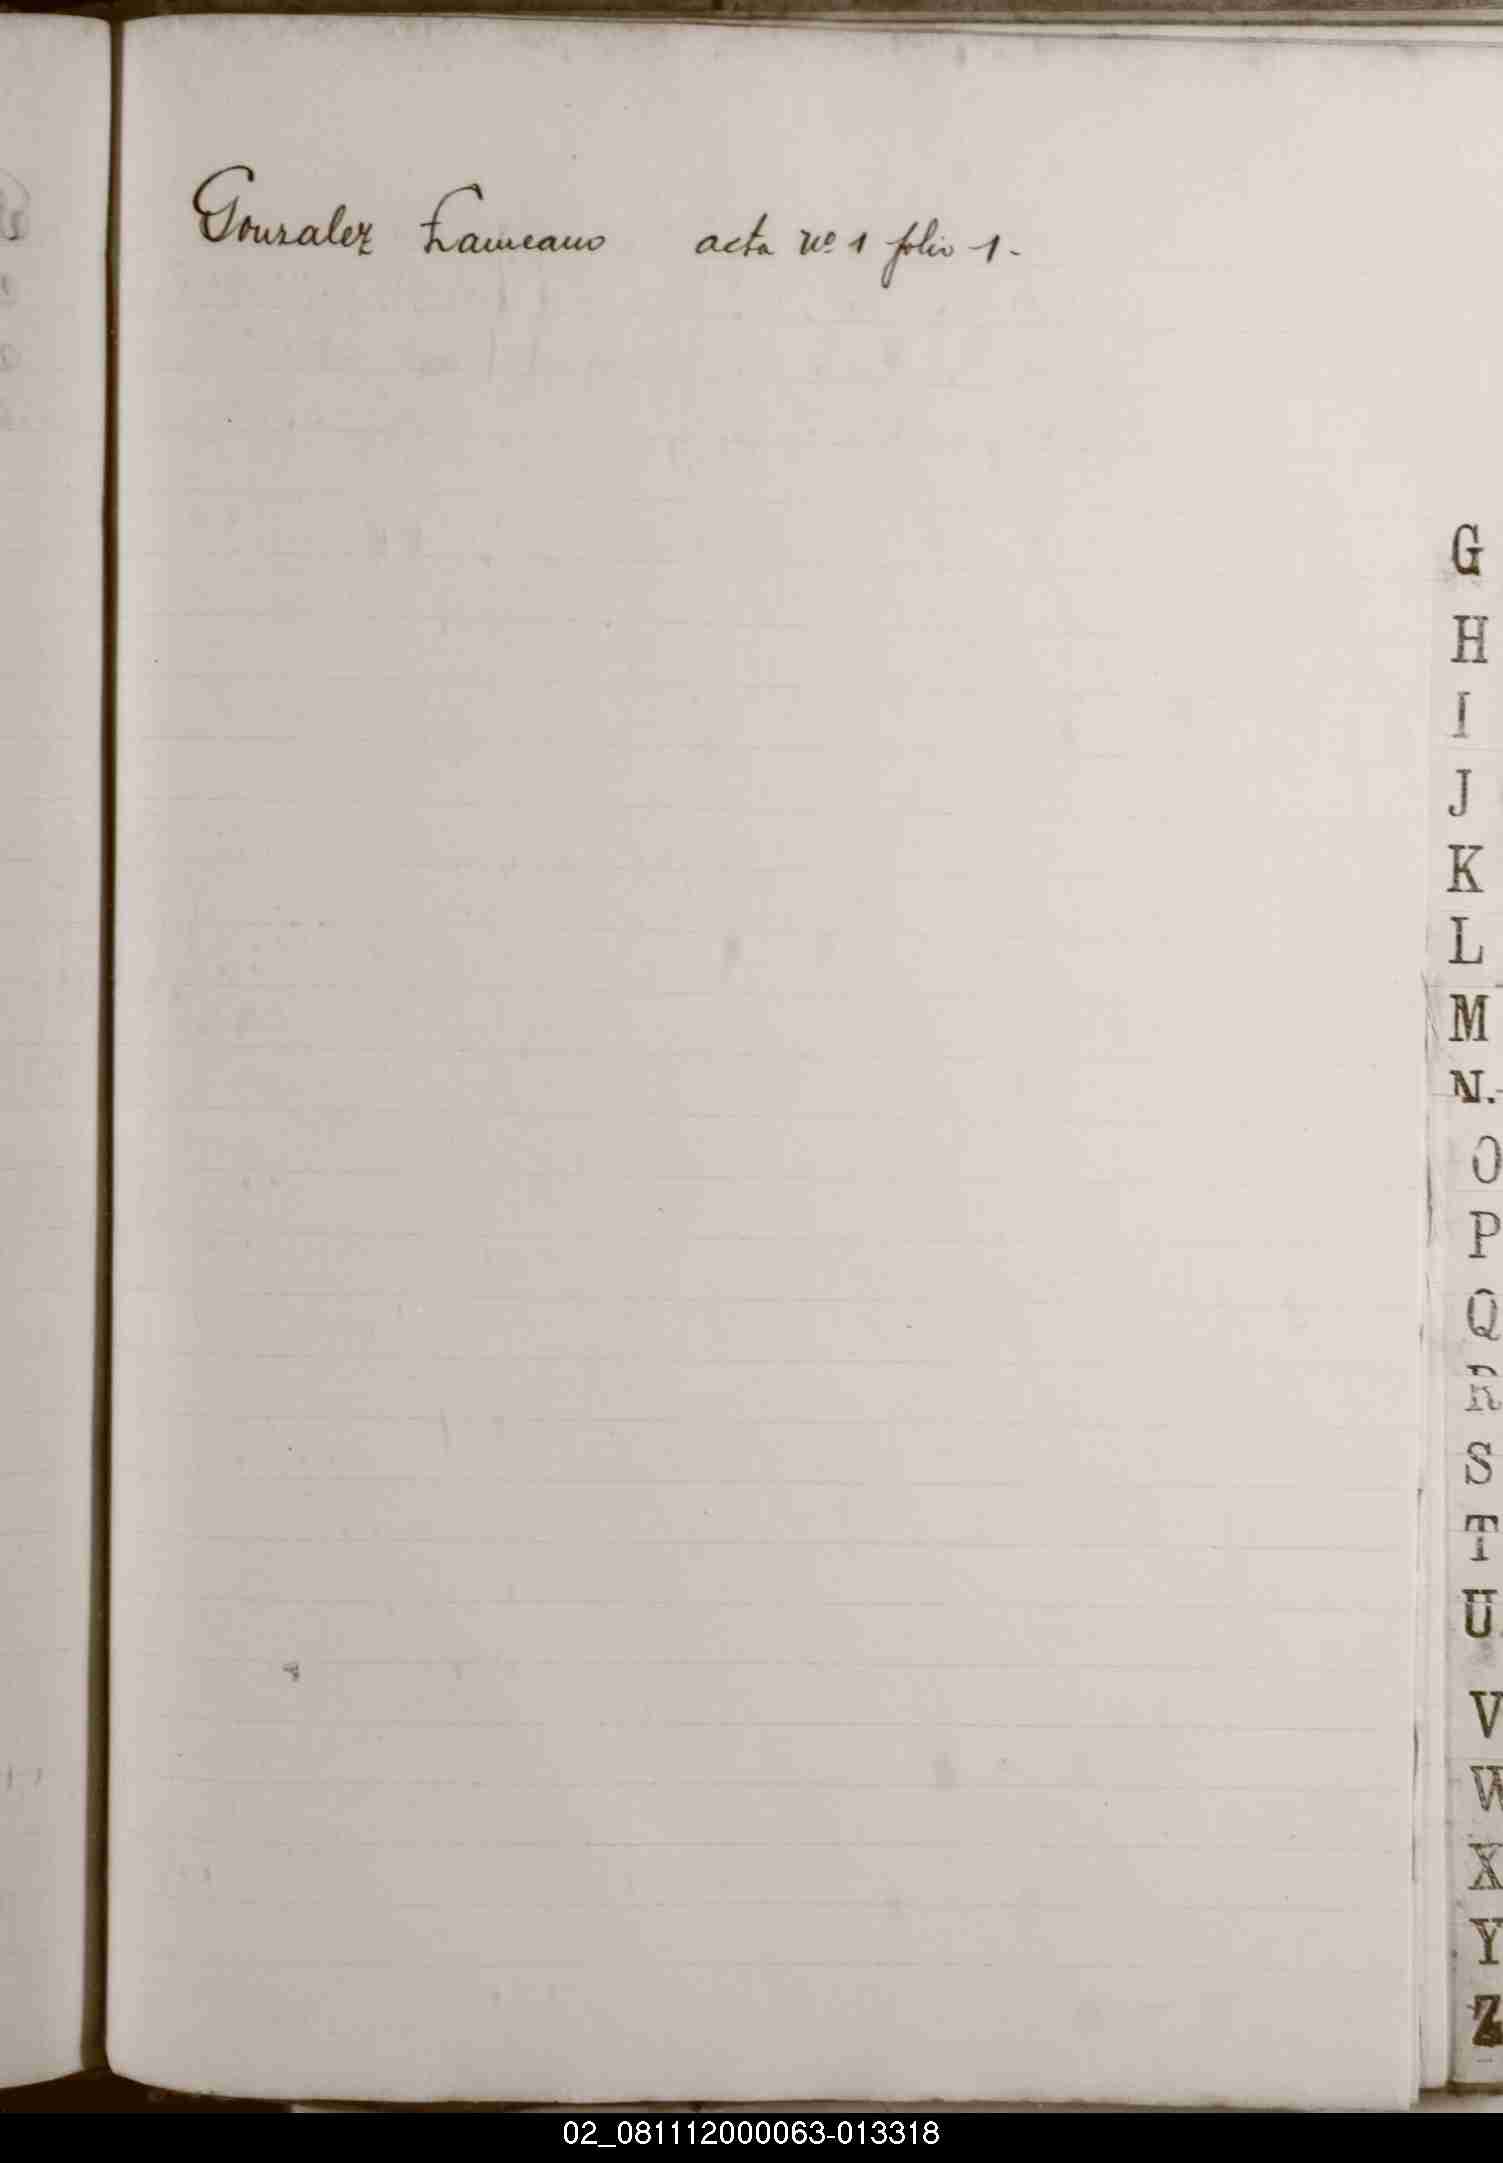 Gonzalez acta nº 1 folio 1.
G
H
I
J
K
L
M
N.
O
P
Q
R
S
T
U
V
W
X
Y
Z
02_081112000063-013318